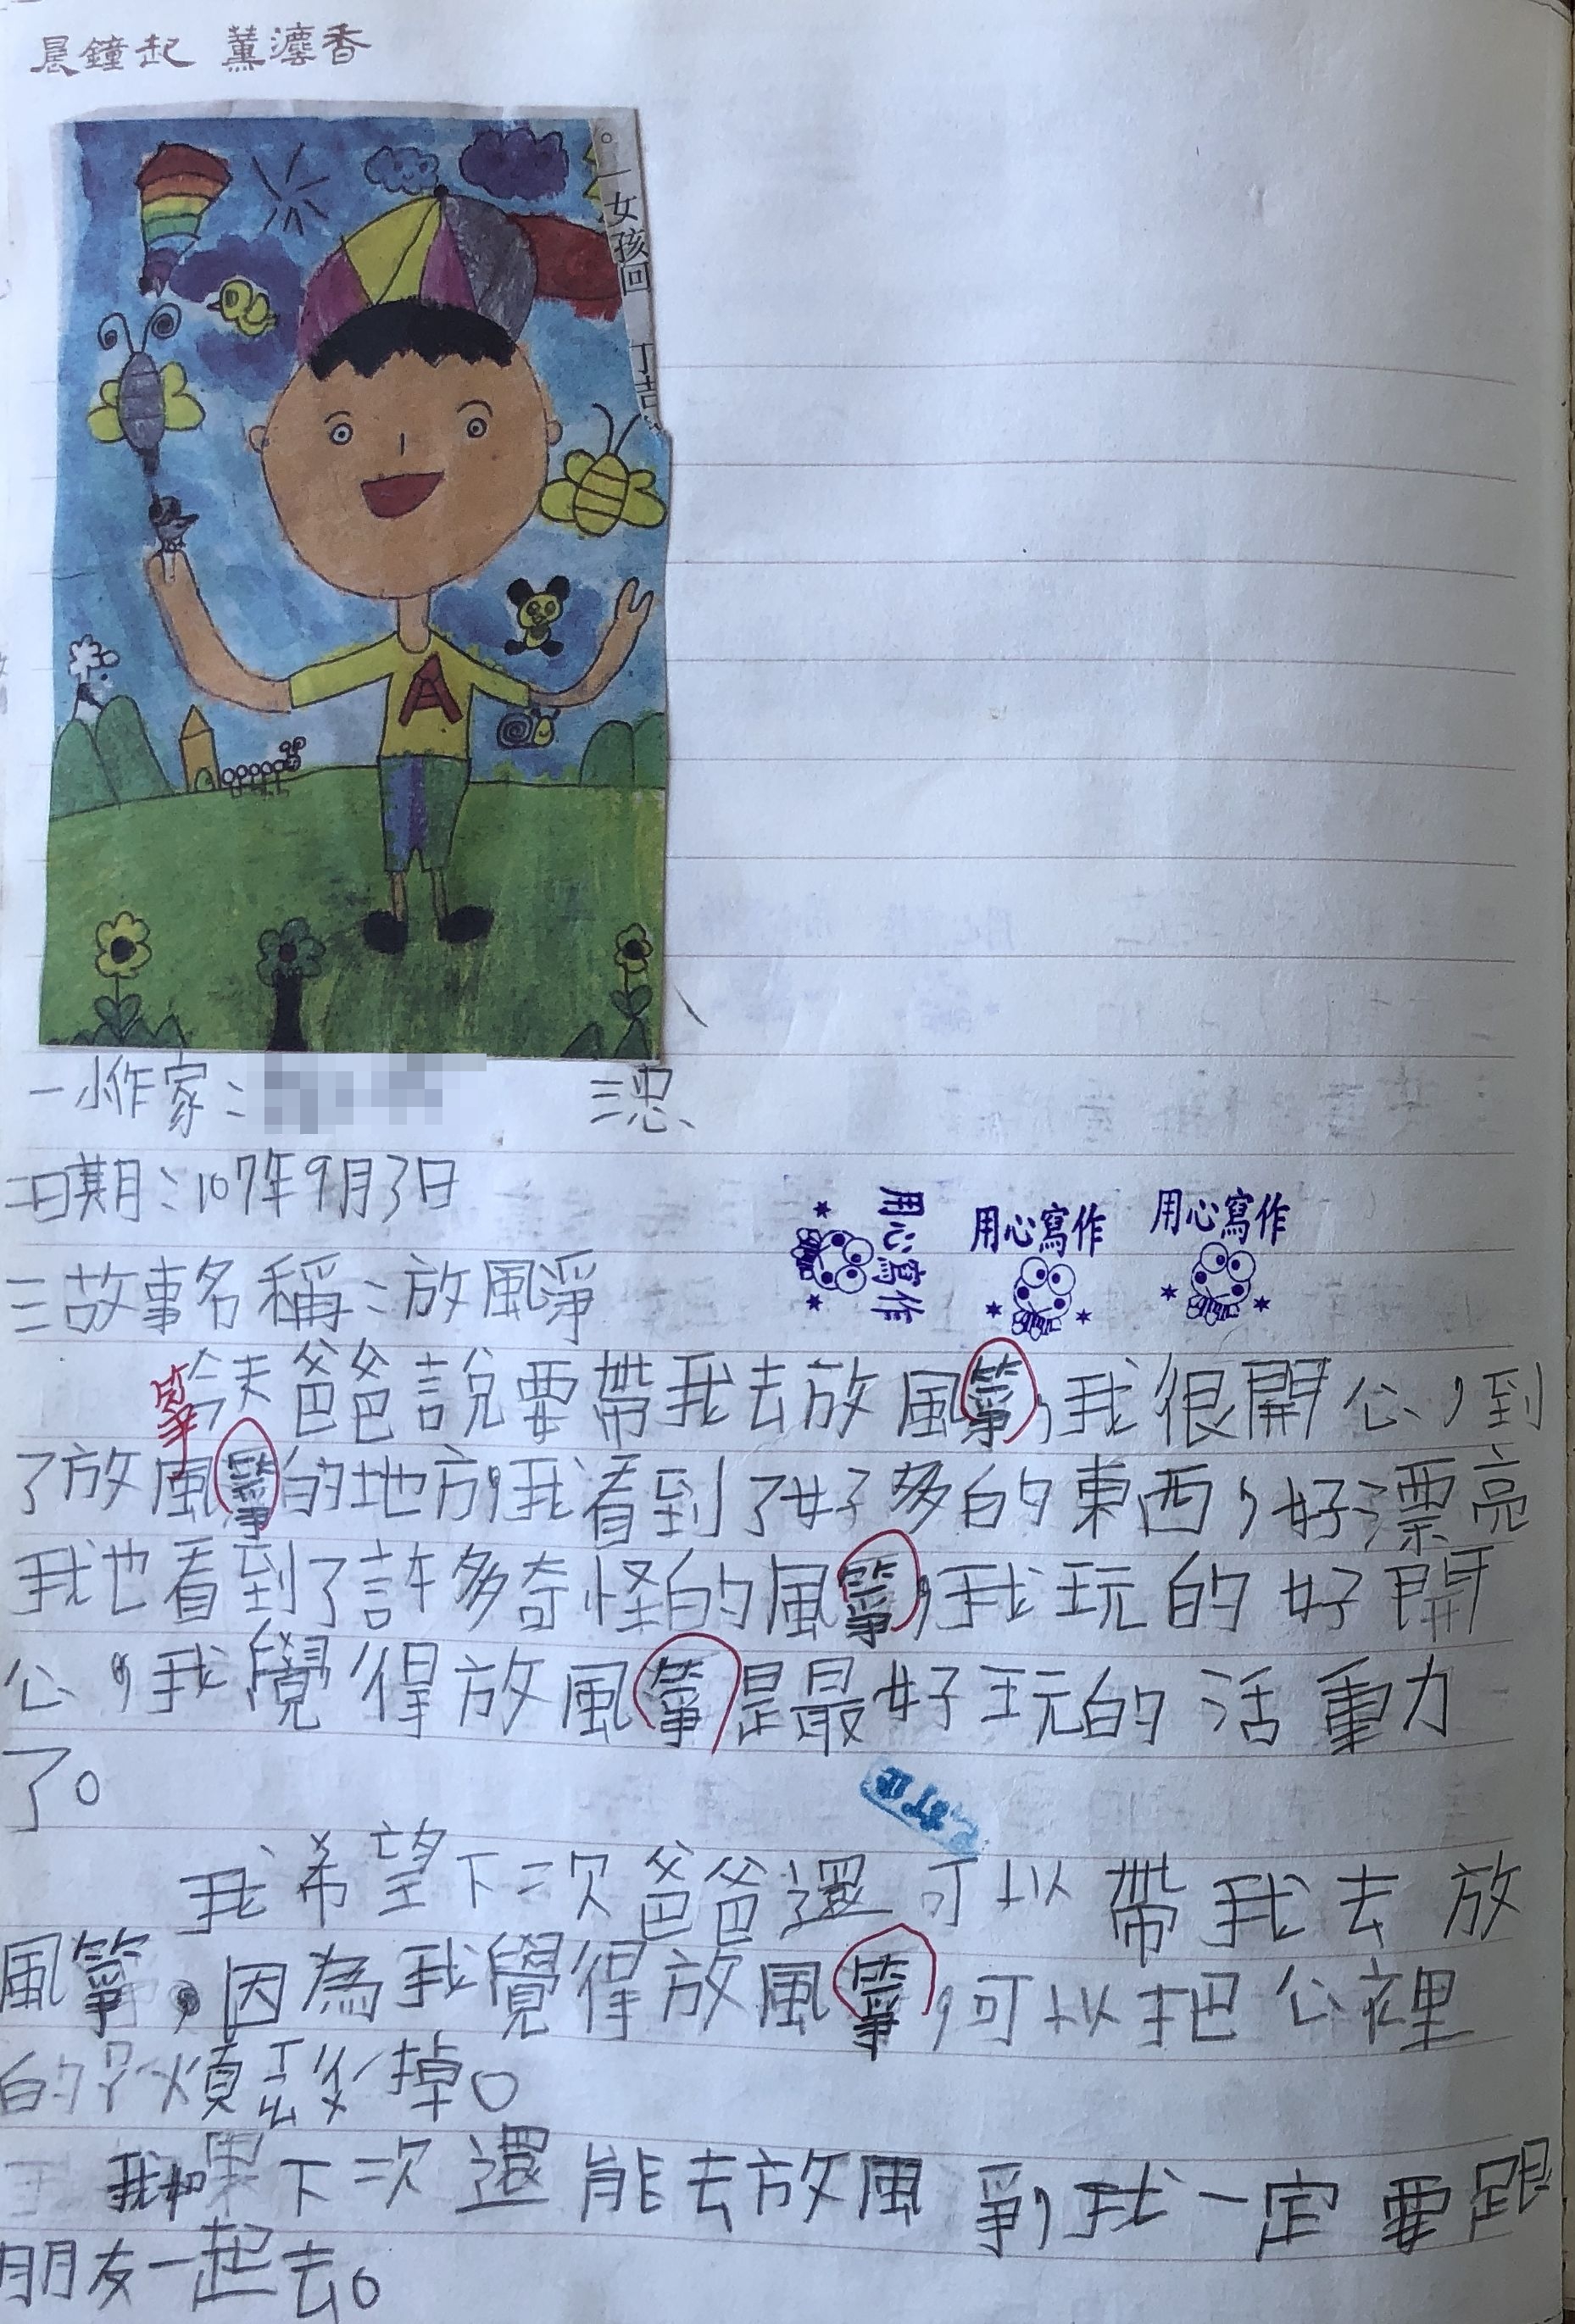 晨鐘起 薰瀍香
。一女孩回 丁吉
A
一小作家:
三忠
二日期:107年9月3日
用心寫作
用心寫作
用心寫作
三故事名稱:放風淨
箏
今天爸爸說要帶我去放風箏,我很開心,到
了放風箏的地方,我看到了好多的東西,好漂亮
我也看到了許多奇怪的風箏,我玩的好開
心,我覺得放風箏是最好玩的活動
了。
訂正
我希望下次爸爸還可以帶我去放
風箏,因為我覺得放風箏,可以把心裡
的煩惱掉。
我如果下次還能去放風爭,我一定要跟
朋友一起去。